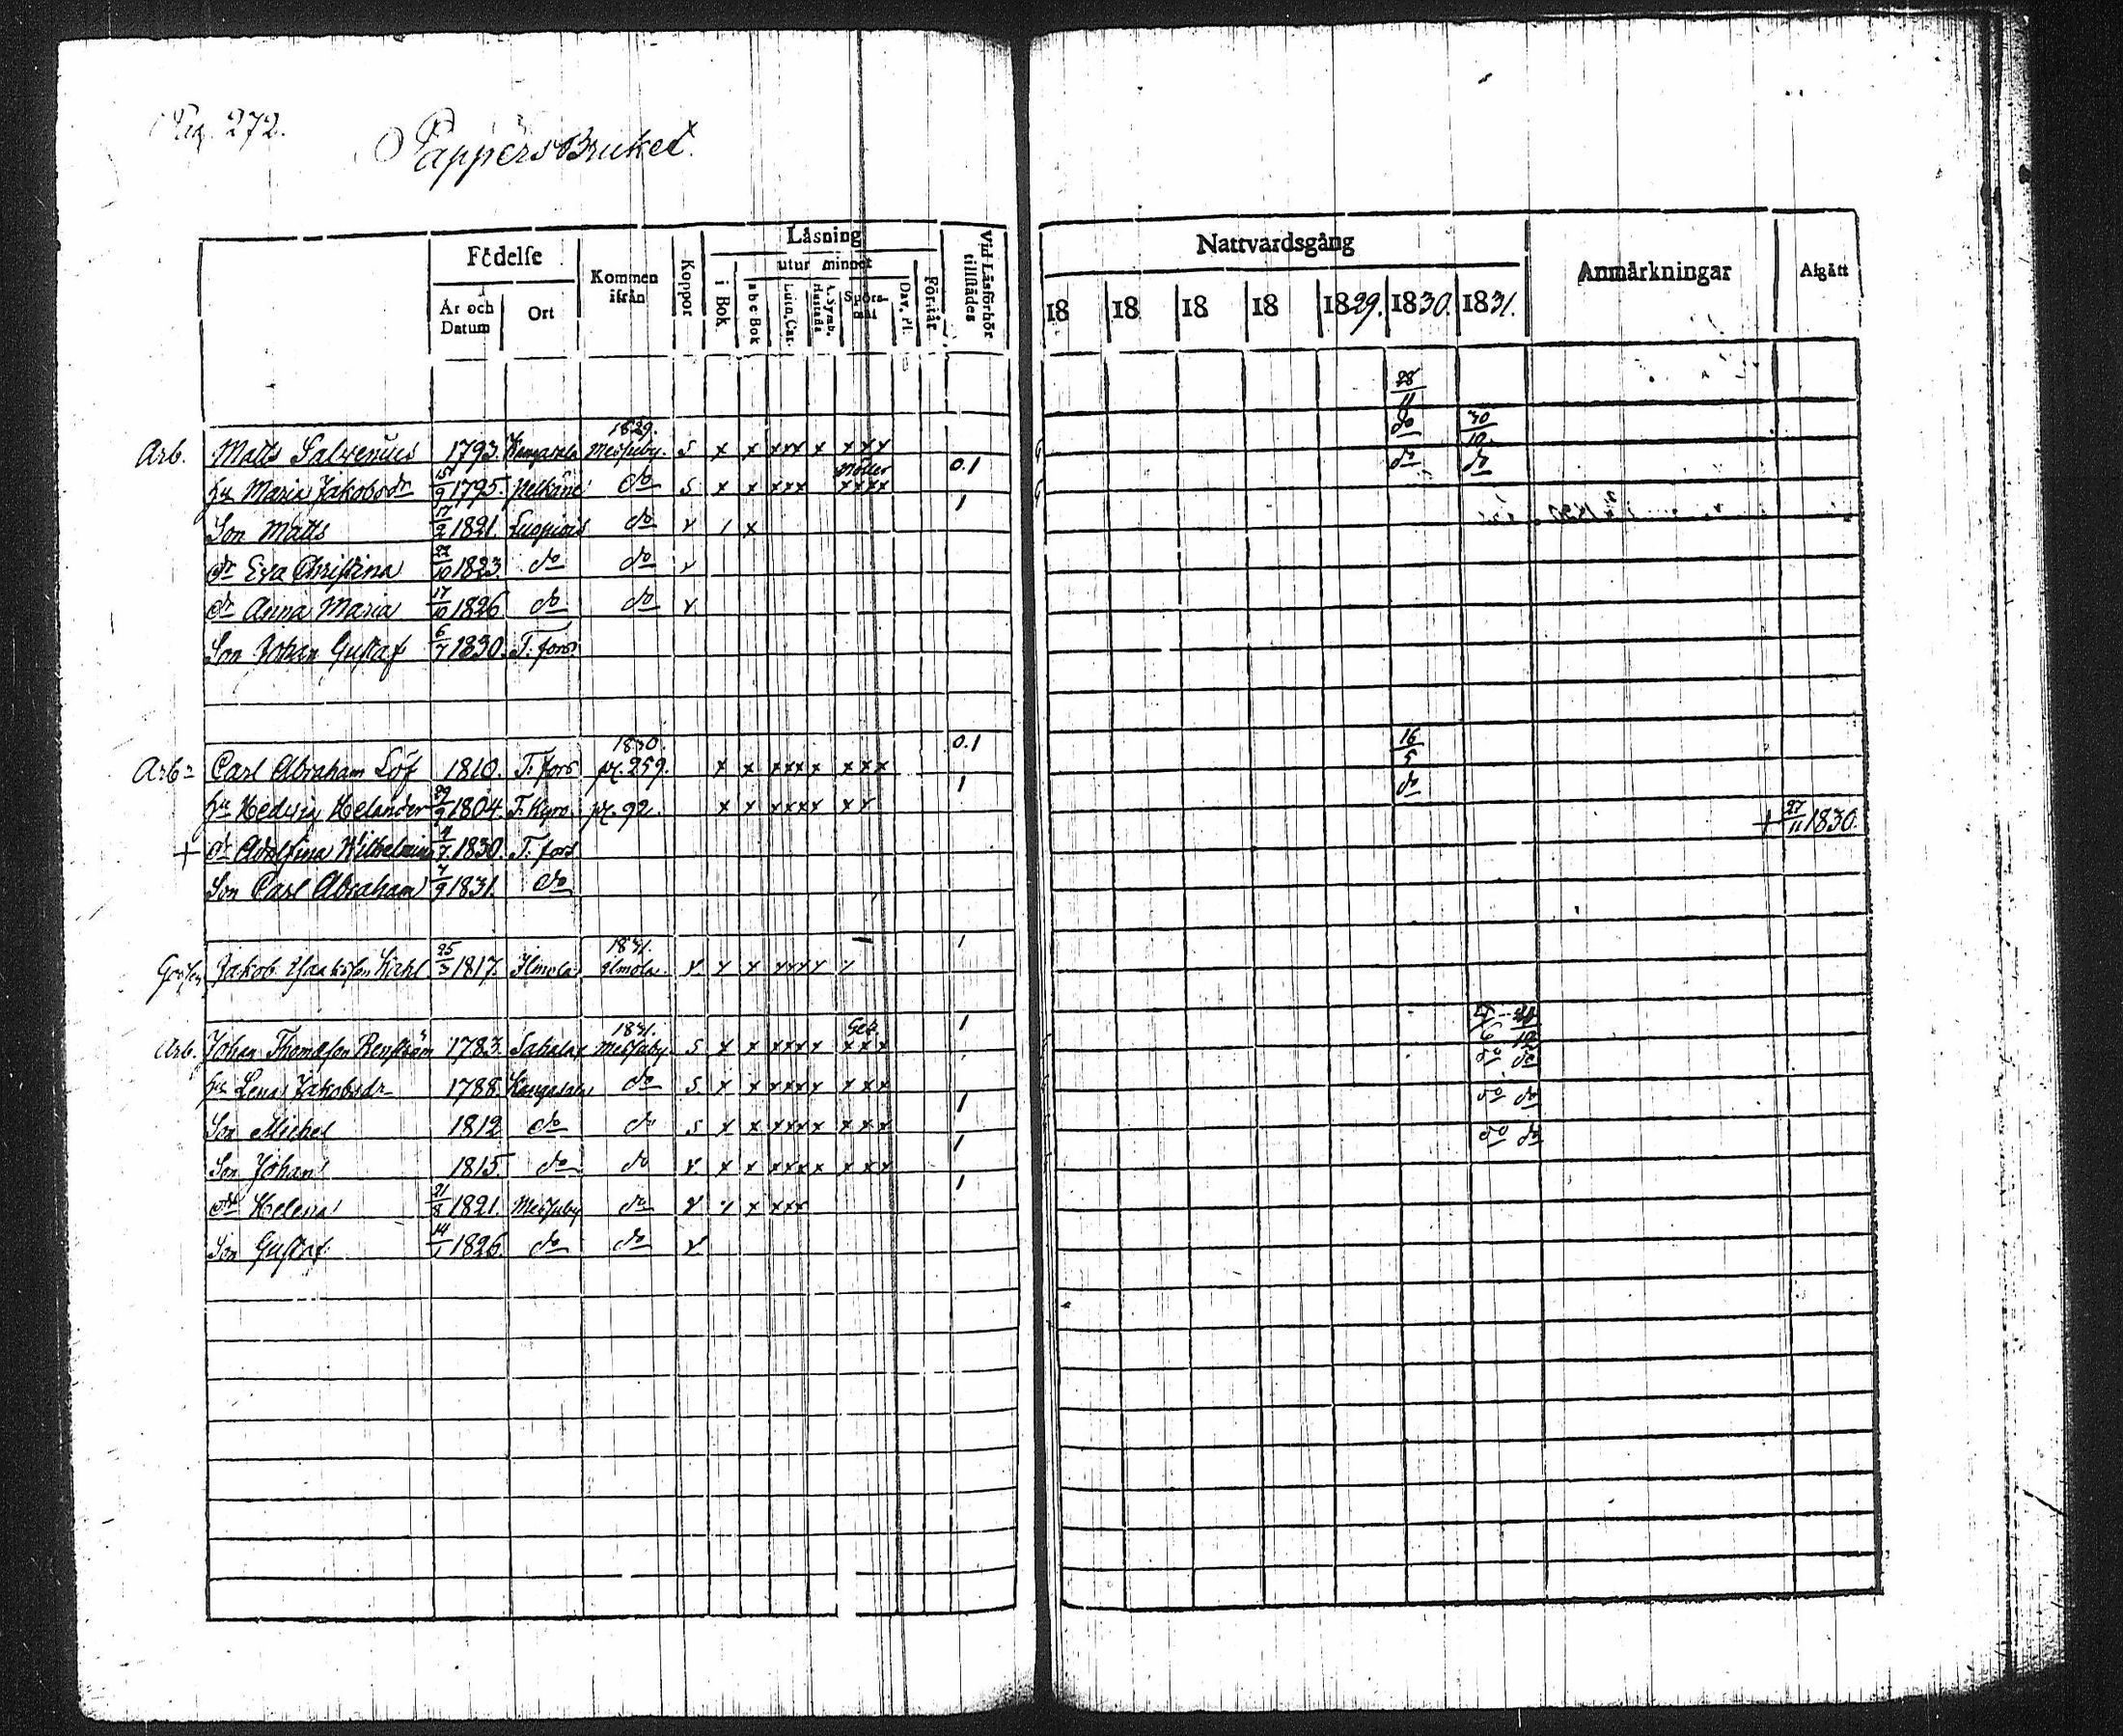 Pag. 272.
Pappersbruket.
Födelse
Kommen ifrån
Koppor
Läsning
Vid Läsförhör tillstädes
År och Datum
Ort
i Bok
utur minnet
abc Bok
Luth. Cat.
Spörsmål
Dav. Ps.
Förstår
Nattvardsgång
Anmärkningar
Afgått
18 18 18 18 1829. 1830. 1831.
28/11
1829.
Arb. Matts 1793. Kangasala Messuby. S x x xxx x xxx do 30/10
hu Maria Jakobsdr 15/9 1795. Pelkäne do S x x xxx xxxx 0.1 do do
Son Matts 17/2 1821. do v / x 1
dr Eva Christina 22/10 1823. do do v
dr Anna Maria 17/10 1826 do do v
Son Johan Gustaf 6/7 1830. T. fors
1830. 0.1 16/5
Arbr Carl Abraham Löf 1810. T. fors pg. 259. x x xxxx xxx
hu Hedvig Helander 29/9 1804. T. Kyro pg. 92. x x xxxx xx 1 do
+ dr Adolfina Wilhelmina 4/7 1830. T. fors + 27/11 1830.
Son Carl Abraham 7/9 1831. do
1831. 1
Jakob 25/3 1817. Ilmola Ilmola v v x xxxx x
1831. 1
Arb. Johan Thomasson Renström 1783. Messuby S x x xxxx xxx
hu Lena Jakobsdr 1788. Kangasala do S. x x xxxx xxx do do
Son Michel 1812 do do S x x xxxx xxx 1 do do
Son Johan 1815. do do v x x xxxx xxx 1 do do
dr Helena 21/8 1821. Messuby do v x x xxx 1
Son Gustaf 14/1 1826 do do v